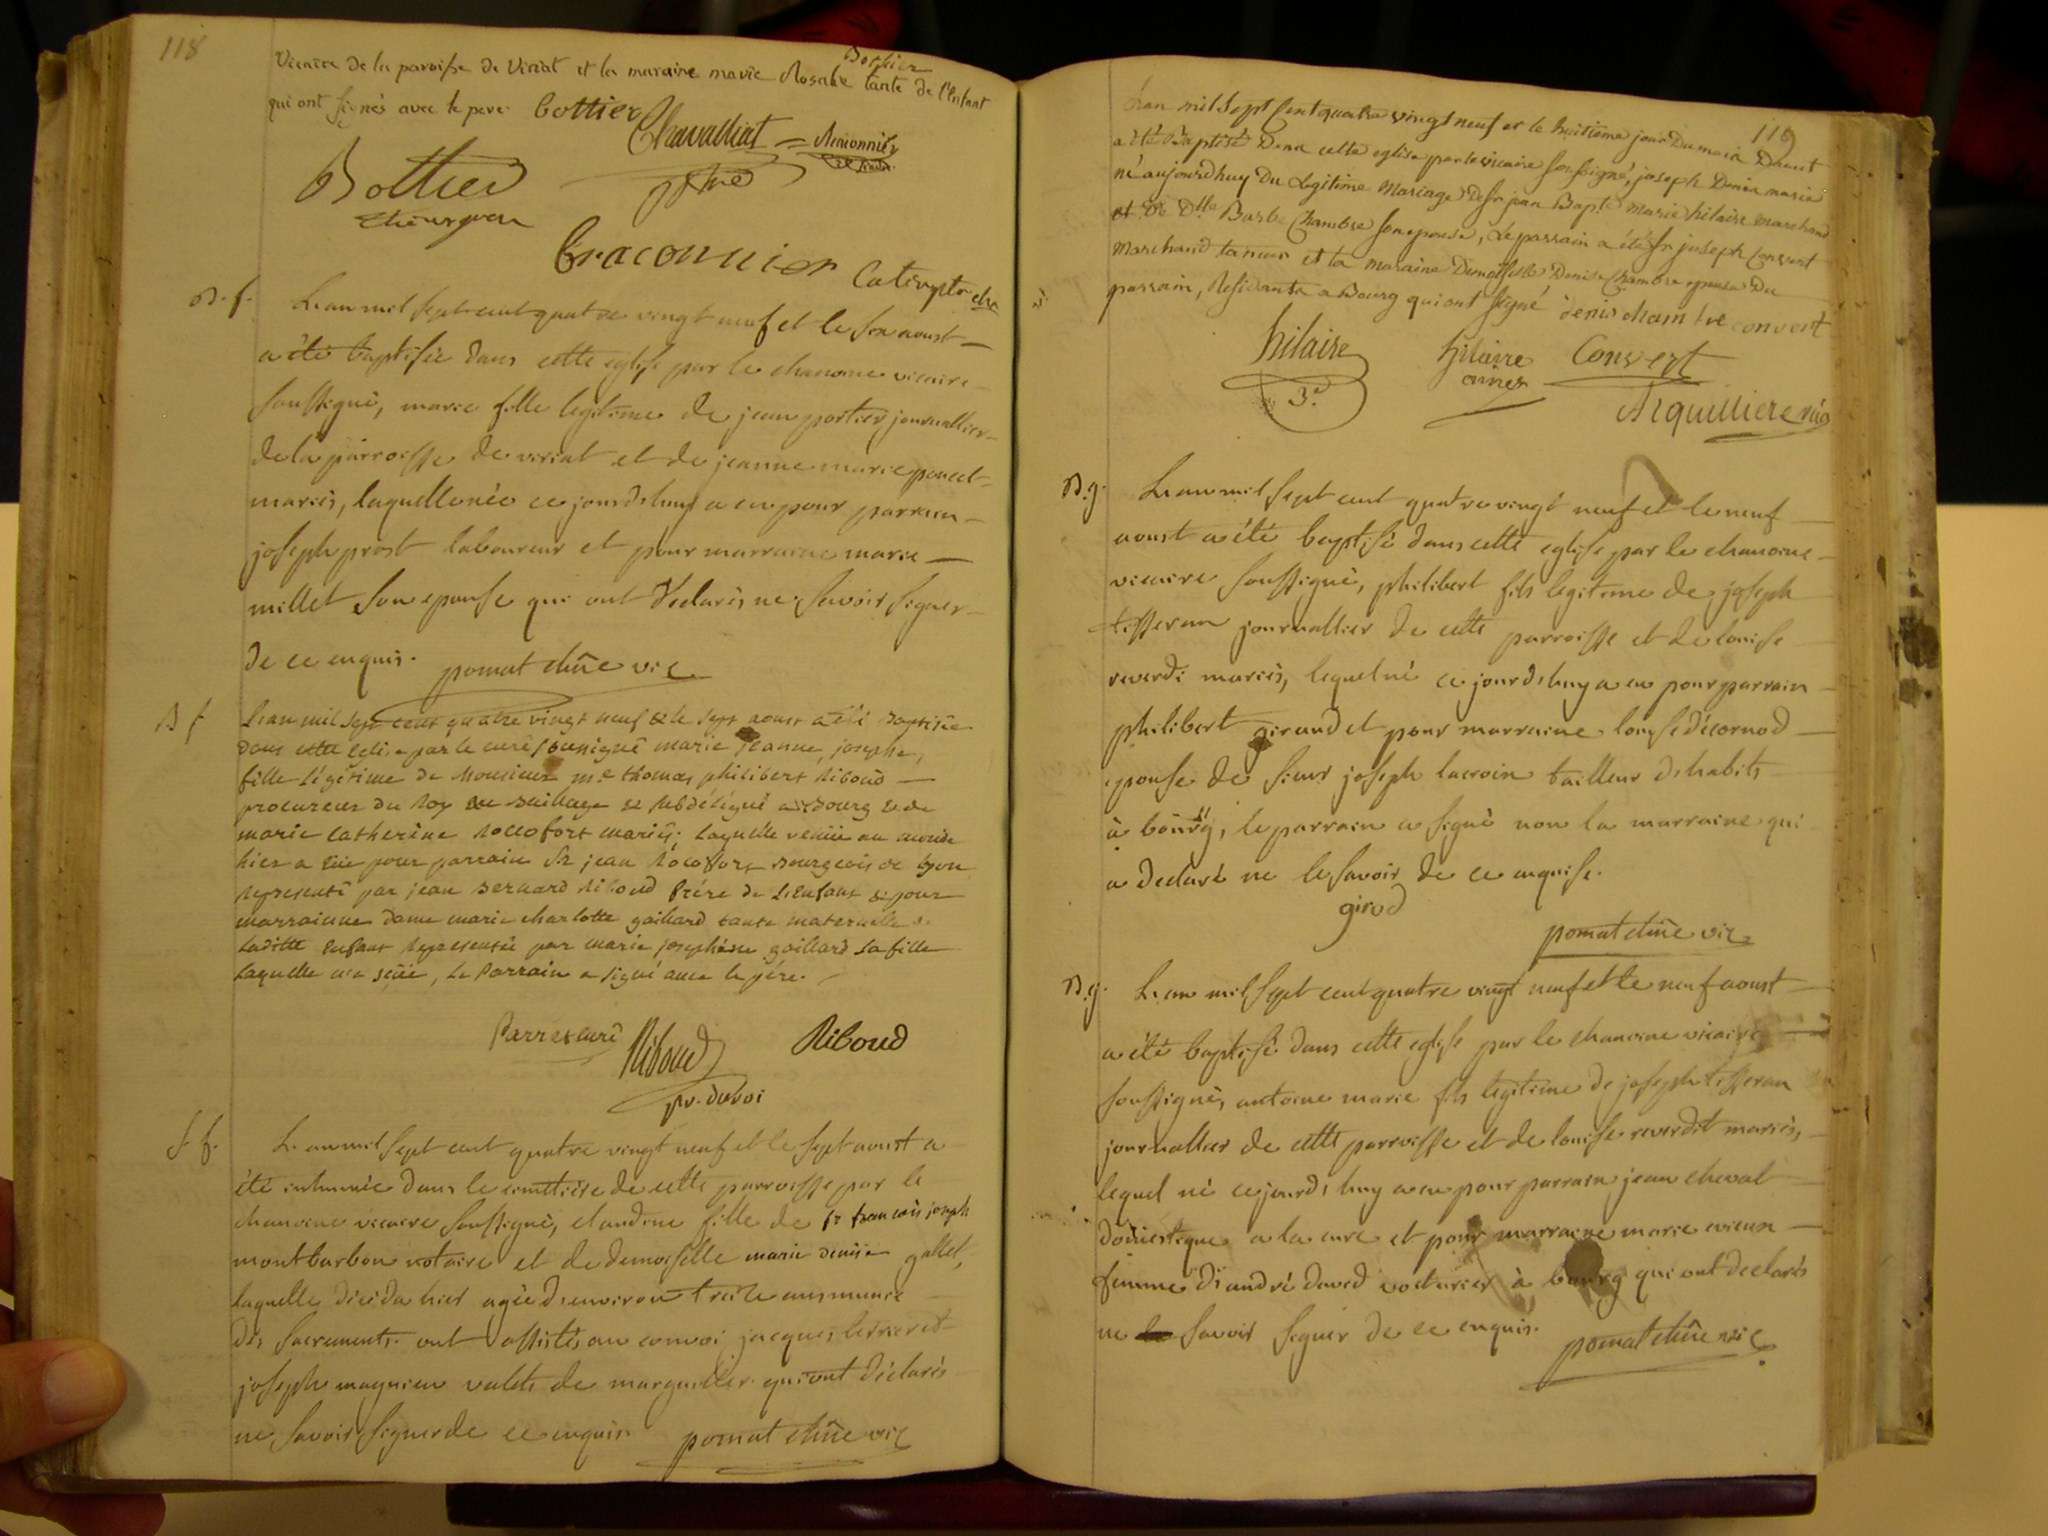 118
Bottier
Vicaire de la paroisse de Viriat et la maraine marie Rosalie tante de l'Enfant
qui ont signés avec le pere. bottier
Chavalliat
Bottier
chirurgien
ptre
Braconnier
B. f. L'an mil sept cent quatre vingt neuf et le six aoust
a été baptisée dans cette eglise par le chanoine vicaire
soussigné, marie fille legitime de jean portier journallier
de la parroisse de viriat et de jeanne marie poncet
mariés, laquelle née ce jourd'huy a eu pour parrain
joseph prost laboureur et pour marraine marie
millet son epouse qui ont declarés ne savoir signer
de ce enquis. pomat chne vic
B f L'an mil sept cent quatre vingt neuf & le sept aoust a été baptisée
dans cette eglise par le curé soussigné marie jeanne josephe,
fille légitime de Monsieur me thomas philibert Riboud
procureur du Roy au Bailliage & subdélégué a Bourg & de
marie catherine Rocofort mariés. Laquelle venue au monde
hier a eue pour parrain Sr jean Rocofort Bourgeois de Lyon
représenté par jean Bernard Riboud frére de L'enfant & pour
marrainne dame marie charlotte gaillard tante maternelle de
Laditte enfant Représentée par marie josephine gaillard sa fille
Laquelle
Le Parrain a signé avec le pére.
curé
Riboud
Riboud
pr. du roi
S. f. L'an mil sept cent quatre vingt neuf et le sept aoust a
été inhumée dans le cimetiere de cette parroisse par le
chanoine vicaire soussigné, claudine fille de Sr françois joseph
montbarbon notaire et de demoiselle marie denise gallet,
laquelle décéda hier agée d'environ treize ans munie
des sacrements. ont assistés au convoi jacques
et
joseph magnien valets de marguillier qui ont déclarés
ne savoir signer de ce enquis pomat chne vic
119
L'an mil sept cent quatre vingt neuf et le huitieme jour du mois D'aout
a été Baptisé Dans cette eglise par le vicaire soussigné, joseph Denis marie
né aujourdhuy Du Legitime Mariage De Sr jean Bapte marie hilaire marchand
et De Dlle Barbe Chambre son epouse, Le parrain a été Sr joseph Convert
Marchand taneur et la maraine Demoiselle Denise Chambre epouse Du
parrain, Residants a Bourg qui ont signé denise chambre convert
hilaire
3e
hilaire
Convert
Arquilliere vic
B. g. L'an mil sept cent quatre vingt neuf et le neuf
aoust a été baptisé dans cette eglise par le chanoine
vicaire soussigné, philibert fils legitime de joseph
tisseran journallier de cette parroisse et de louise
reverdi mariés, lequel né ce jourd'huy a eu pour parrain
philibert giraud et pour marraine louise décornod
epouse de sieur joseph lacroix tailleur d'habits
à bourg, le parrain a signé non la marraine qui
a declaré ne le savoir de ce enquise.
girod
pomat chne vic
B. g. L'an mil sept cent quatre vingt neuf et le neuf aoust
a été baptisé dans cette eglise par le chanoine vicaire
soussigné, antoine marie fils legitime de joseph tisseran
journallier de cette parroisse et de louise reverdit mariés,
lequel né ce jourd'huy a eu pour parrain jean cheval
domestique a la cure et pour marraine marie
femme d'andré david voiturier à bourg qui ont declarés
ne savoir signer de ce enquis. pomat chne vic